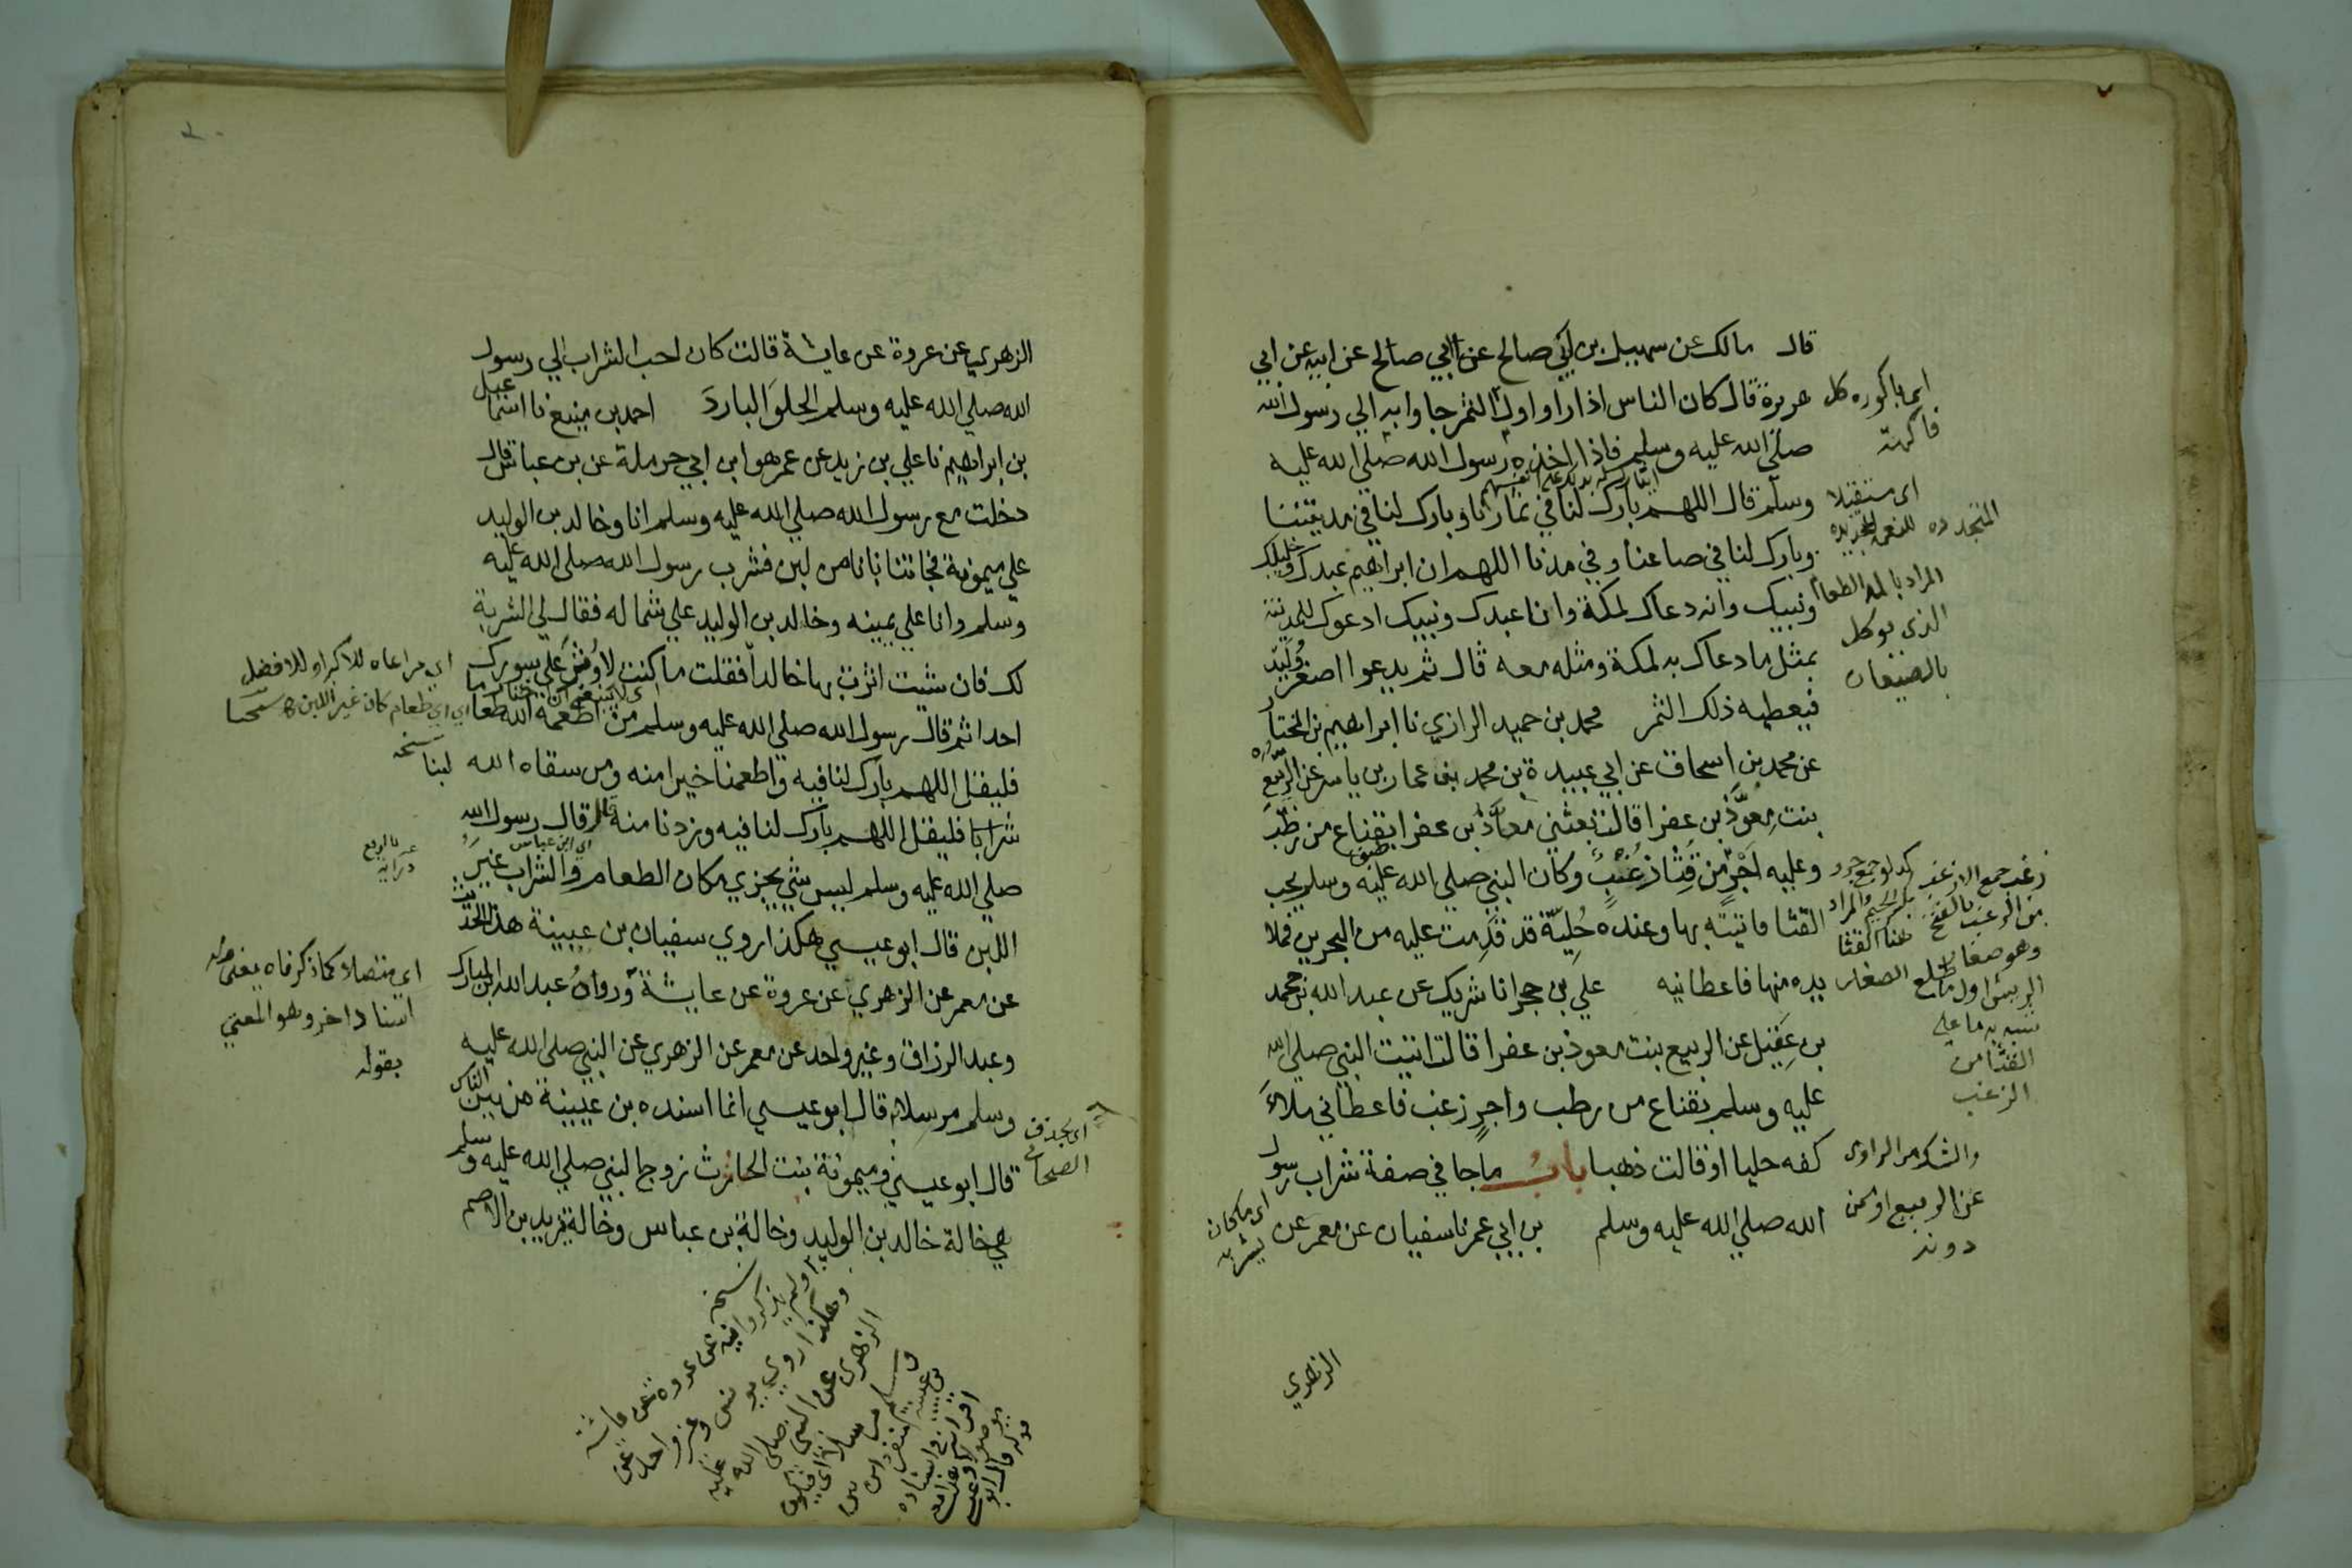 قال مالك عن سهيل بن ابي صالح عن ابي صالح عن ابيه عن ابي
هريرة قال كان الناس اذا راوا اول الثمر جاوا به الي رسول الله
صلي الله عليه وسلم فاذا اخذه رسول الله صلي الله عليه
وسلم قال اللهم بارك لنا في ثمارنا وبارك لنا في مدينتنا
وبارك لنا في صاعنا وفي مدنا اللهم ان ابراهيم عبدك وخليلك
ونبيك وانه دعاك لمكة وانا عبدك ونبيك ادعوك للمدينة
بمثل ما دعاك به لمكة ومثله معه قال ثم يدعوا اصغر وليد
فيعطيه ذلك الثمر محمد بن حميد الرازي نا ابراهيم بن المختار
عن محمد بن اسحاق عن ابي عبيدة بن محمد بن عمار بن ياسر عن الربيع
بنت معوذ بن عفرا قالت بعثني معاذ بن عفرا بقناع من رطب
وعليه اجر من قثا زغب وكان النبي صلي الله عليه وسلم يحب
القثا فاتيته بها وعنده حلية قد قدمت عليه من البحرين فملا
يده منها فاعطانيه علي بن حجر انا شريك عن عبد الله بن محمد
بن عقيل عن الربيع بنت معوذ بن عفرا قالت اتيت النبي صلي الله
عليه وسلم بقناع من رطب واجر زغب فاعطاني ملاء
كفه حليا او قالت ذهبا باب ماجا في صفة شراب رسول
الله صلي الله عليه وسلم بن ابي عمر نا سفيان عن معمر عن
الزهري
اي باكوره كل
فاكهة
اي مستقبلا
للنعمة المتجدده
المراد بالمد الطعام
الذي يوكل
بالصيعان
زغب جمع الازغب
من الزغب بالفتح
وهو صغار
الريش اول ما يطلع
شبه به ما علي
القثا من
الزغب
والشك من الراوي
عن الربيع او ممن
دونه
اي ما كان
يشربه
الزهري عن عروة عن عايشة قالت كان احب الشراب الي رسول
الله صلي الله عليه وسلم الحلو البارد احمد بن منيع نا اسمعيل
بن ابراهيم نا علي بن زيد عن عمر هو ابن ابي حرملة عن بن عباس قال
دخلت مع رسول الله صلي الله عليه وسلم انا وخالد بن الوليد
علي ميمونة فجاتنا بانا من لبن فشرب رسول الله صلي الله عليه
وسلم وانا علي يمينه وخالد بن الوليد علي شماله فقال لي الشربة
لك فان شيت اثرت بها خالدا فقلت ما كنت لاوثر علي سورك
احدا ثم قال رسول الله صلي الله عليه وسلم من اطعمه الله طعاما
فليقل اللهم بارك لنا فيه واطعمنا خيرا منه ومن سقاه الله لبنا
شرابا فليقل اللهم بارك لنا فيه وزدنا منه قال قال رسول الله
صلي الله عليه وسلم ليس شي يجزي مكان الطعام والشراب غير
اللبن قال ابو عيسي هكذا روي سفيان بن عيينة هذا الحديث
عن معمر عن الزهري عن عروة عن عايشة ورواه عبد الله بن المبارك
وعبد الرزاق وغير واحد عن معمر عن الزهري عن النبي صلي الله عليه
وسلم مرسلا قال ابو عيسي انما اسنده بن عيينة من بين الناس
قال ابو عيسي وميمونة بنت الحارث زوج النبي صلي الله عليه وسلم
هي خالة خالد بن الوليد وخالة بن عباس وخالة يزيد بن الاصم
اي مراعاه للاكبر او للافضل
اي اي طعام كان غير اللبن
نسخه
اي ابن عباس
اي متصلا كما ذكرناه
اسناد اخر وهو المعني
بقوله
اي بحذف
الصحابي
نسخه
ولم يذكروا فيه عن عروه عن عائشة
وهكذا روي يونس وغير واحد عن
الزهري عن النبي صلي الله عليه
وسلم مرسلا